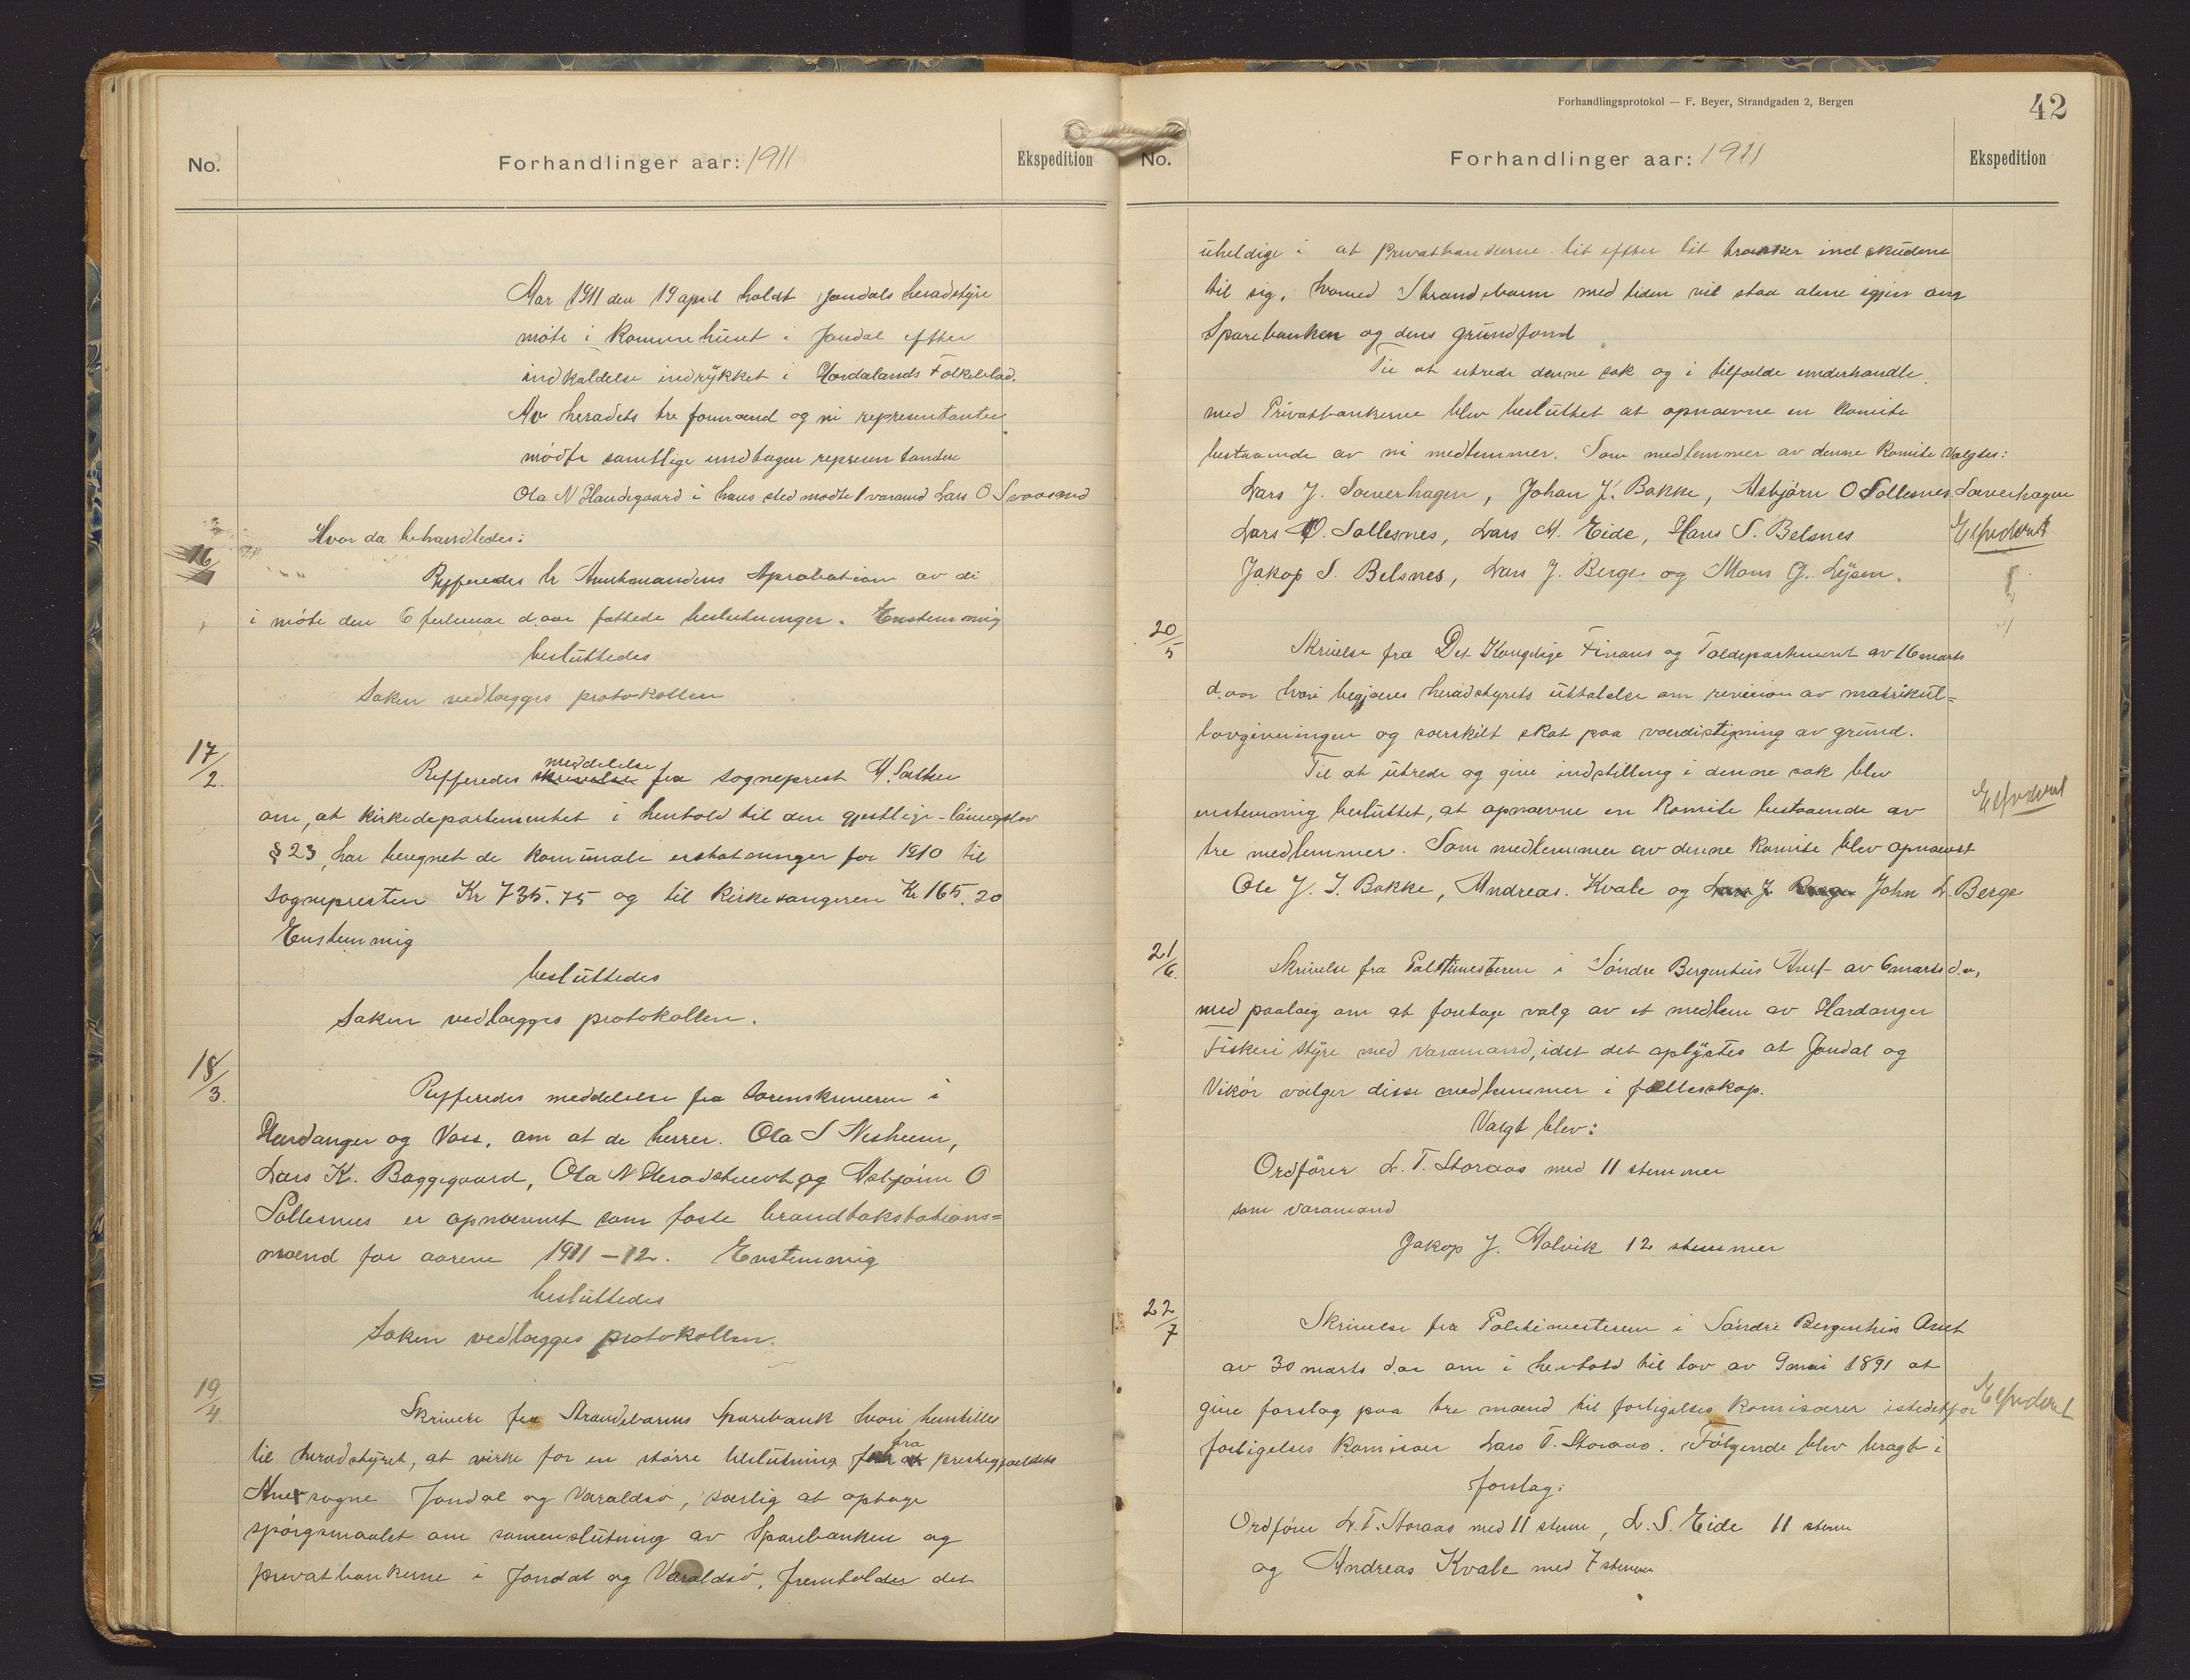 No.
Forhandlinger aar: 1911
Ekspedition
Aar 1911 den 19 april holdt Jondals heradstyre
møte i Komunehuset i Jondal efter
indkaldelse indrykket i Hordalands Folkeblad.
Av heradets tre formænd og ni representanter
mødte samtlige undtagen representanten
Ola N Handegaard i hans sted mødte 1 varamd Lars O Svaasand
Hvor da behandledes:
16/1
Refferedes hr Amtmandens Aprobation av de
i møte den 6 februar d. aar fattede beslutninger. Enstemmig
besluttedes
Saken vedlægges protokollen
17/2.
Refferedes skrivelse meddelelse fra sogneprest
om, at kirkedepartementet i henhold til den gjestlige-lønnigslov
§ 23, har beregnet de komunale erstatninger for 1910 til
sognepresten Kr 735.75 og til kirkesangeren Kr 165.20
Enstemmig
besluttedes
Saken vedlægges protokollen.
18/3.
Refferedes meddelelse fra Sorenskriveren i
Hardanger og Voss, om at de herrer. Ola S Nesheim,
Lars K. Baggegaard, Ola N Heradstveit og Asbjørn O
Sollesnes er opnævnet som faste brandtakstations=
mænd for aarene 1911-12. Enstemmig
besluttedes
Saken vedlægges protokollen.
19/4.
Skrivelse fra Strandebarms Sparebank hvori henstilles
til heradstyret, at virke for en større tilslutning fra prestegjældets
Anexsogne Jondal og Varaldsø, særlig at optage
spørgsmaalet om samenslutning av Sparebanken og
privatbankerne i Jondal og Varaldsø, fremholder det
Forhandlingsprotokol — F. Beyer, Strandgaden 2, Bergen
42
No.
Forhandlinger aar: 1911
Ekspedition
uheldige i at privatbankerne lit efter lit trækker indskudene
til sig, hvorved Strandebarm med tiden vil staa alene igjen om
Sparebanken og dens grundfond
Til at utrede denne sak og i tilfælde underhandle
med Privatbankerne blev besluttet at opnævne en komite
bestaaende av ni medlemmer. Som medlemmer av denne komite valgtes:
Lars J. Sæverhagen, Johan J. Bakke, Asbjørn O Sollesnes
Sæverhagen
Lars O. Sollesnes, Lars A. Eide, Hans S. Belsnes
Ekspederet
Jakop S. Belsnes, Lars J. Berge og Mons G. Lysen.
20/5
Skrivelse fra Det Kongelige Finans og Toldepartement av 16 marts
d. aar hvori begjæres heradstyrets uttalelse om revision av matrikul=
lovgivningen og særskilt skat paa værdistigning av grund.
Til at utrede og give indstilling i denne sak blev
enstemmig besluttet, at opnævne en komite bestaaende av
Ekspederet
tre medlemmer. Som medlemmer av denne komite blev opnævnt
Ole J. T. Bakke, Andreas. Kvale og Lars J. Berge John L. Berge
21/6.
Skrivelse fra Politimesteren i Søndre Bergenhus Amt av 6 marts d.a,
med paalæg om at foretage valg av et medlem av Hardanger
Fiskeri styre med varamand, idet det oplystes at Jondal og
Vikør vælger disse medlemmer i fælleskap.
Valgt blev:
Ordfører L. T. Storaas med 11 stemmer
som varamand
Jakop J. Aalvik 12 stemmer
22/7
Skrivelse fra Politimesteren i Søndre Bergenhus Amt
av 30 marts d.a om i henhold til lov av 9 mai 1891 at
give forslag paa tre mænd til forligelses komisærer istedetfor
Ekspederet
forligelses komisær Lars T. Storaas. Følgende blev bragt i
forslag:
Ordfører L. T. Storaas med 11 stem, L. S. Eide 11 stem
og Andreas Kvale med 7 stemmer